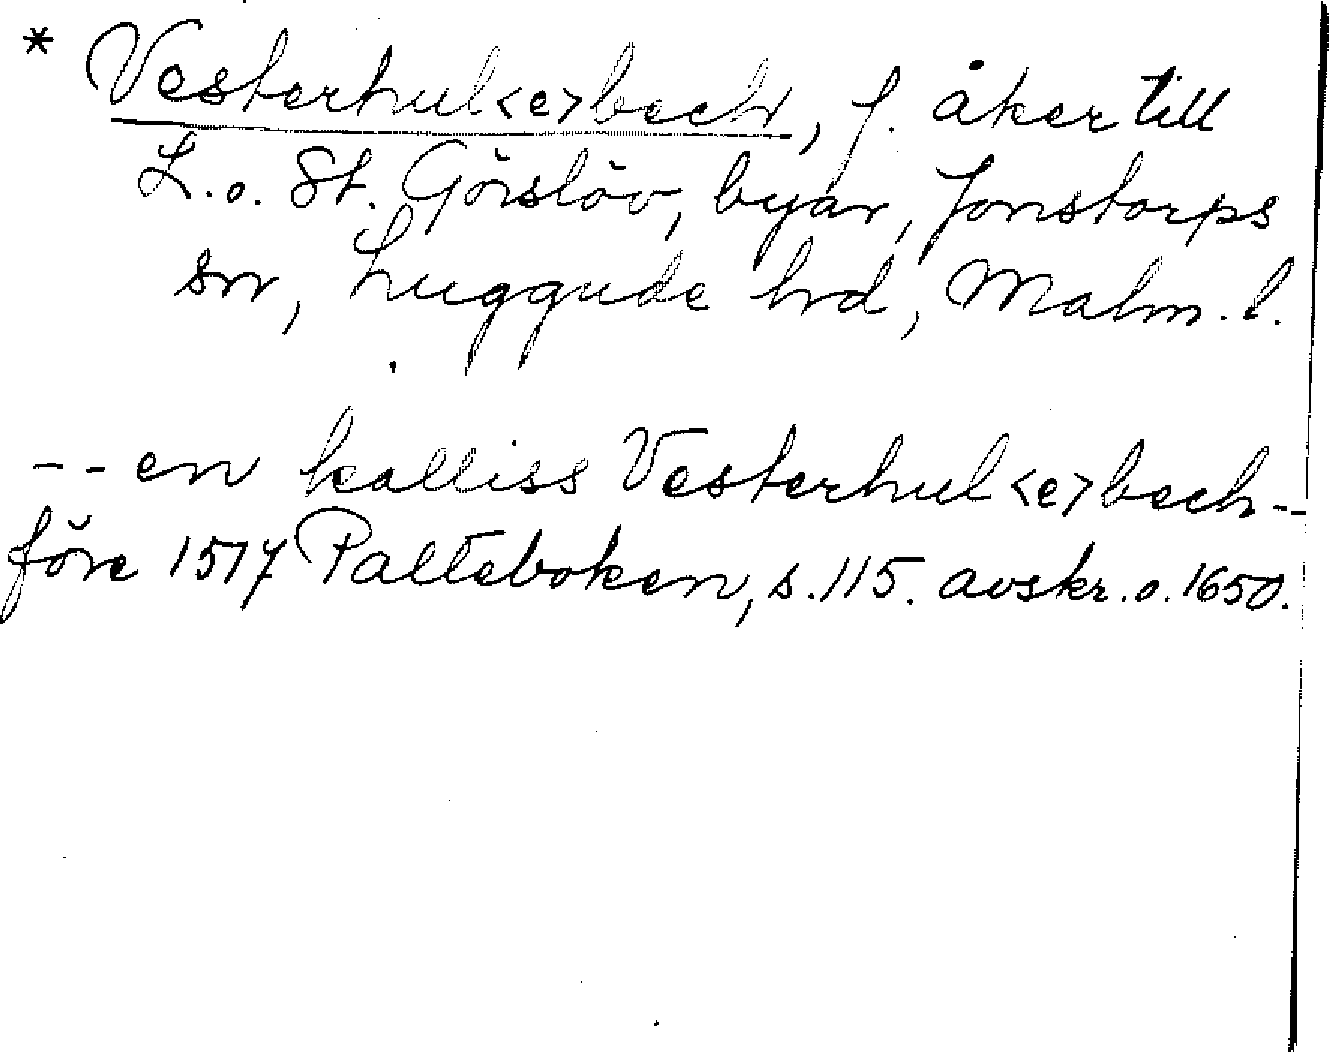 * Vesterhul<e>bech, f. åker till
L. o. St. Görslöv, byar, Jonstorps
sn, Luggude hrd, Malm. l.
-- en kalliss Vesterhul<e>bech --
före 1517 Palteboken, s. 115. avskr. o. 1650.